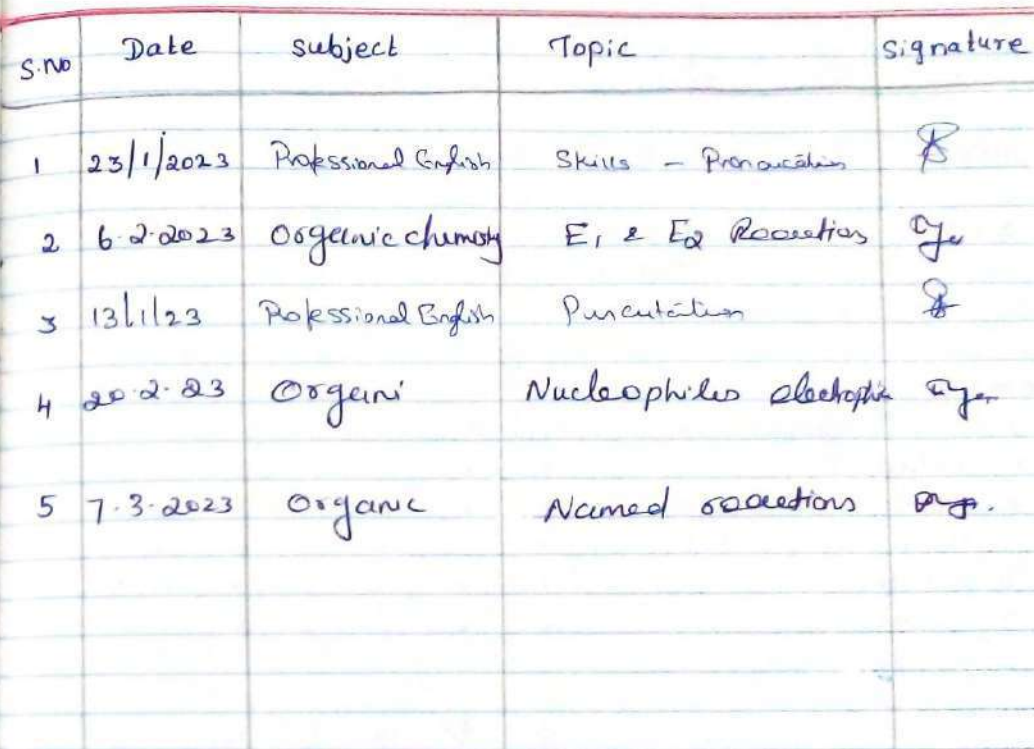 S.No Date subject Topic signature
1 23/1/2023 Professional English Skills - Pronoucation
2 6.2.2023 Organic chemisty E1 & E2 Reactions
3 13/1/23 Professional English Puncutation
4 20.2.23 Organi Nucleophiles electrophi
5 7.3.2023 Organic Named reactions